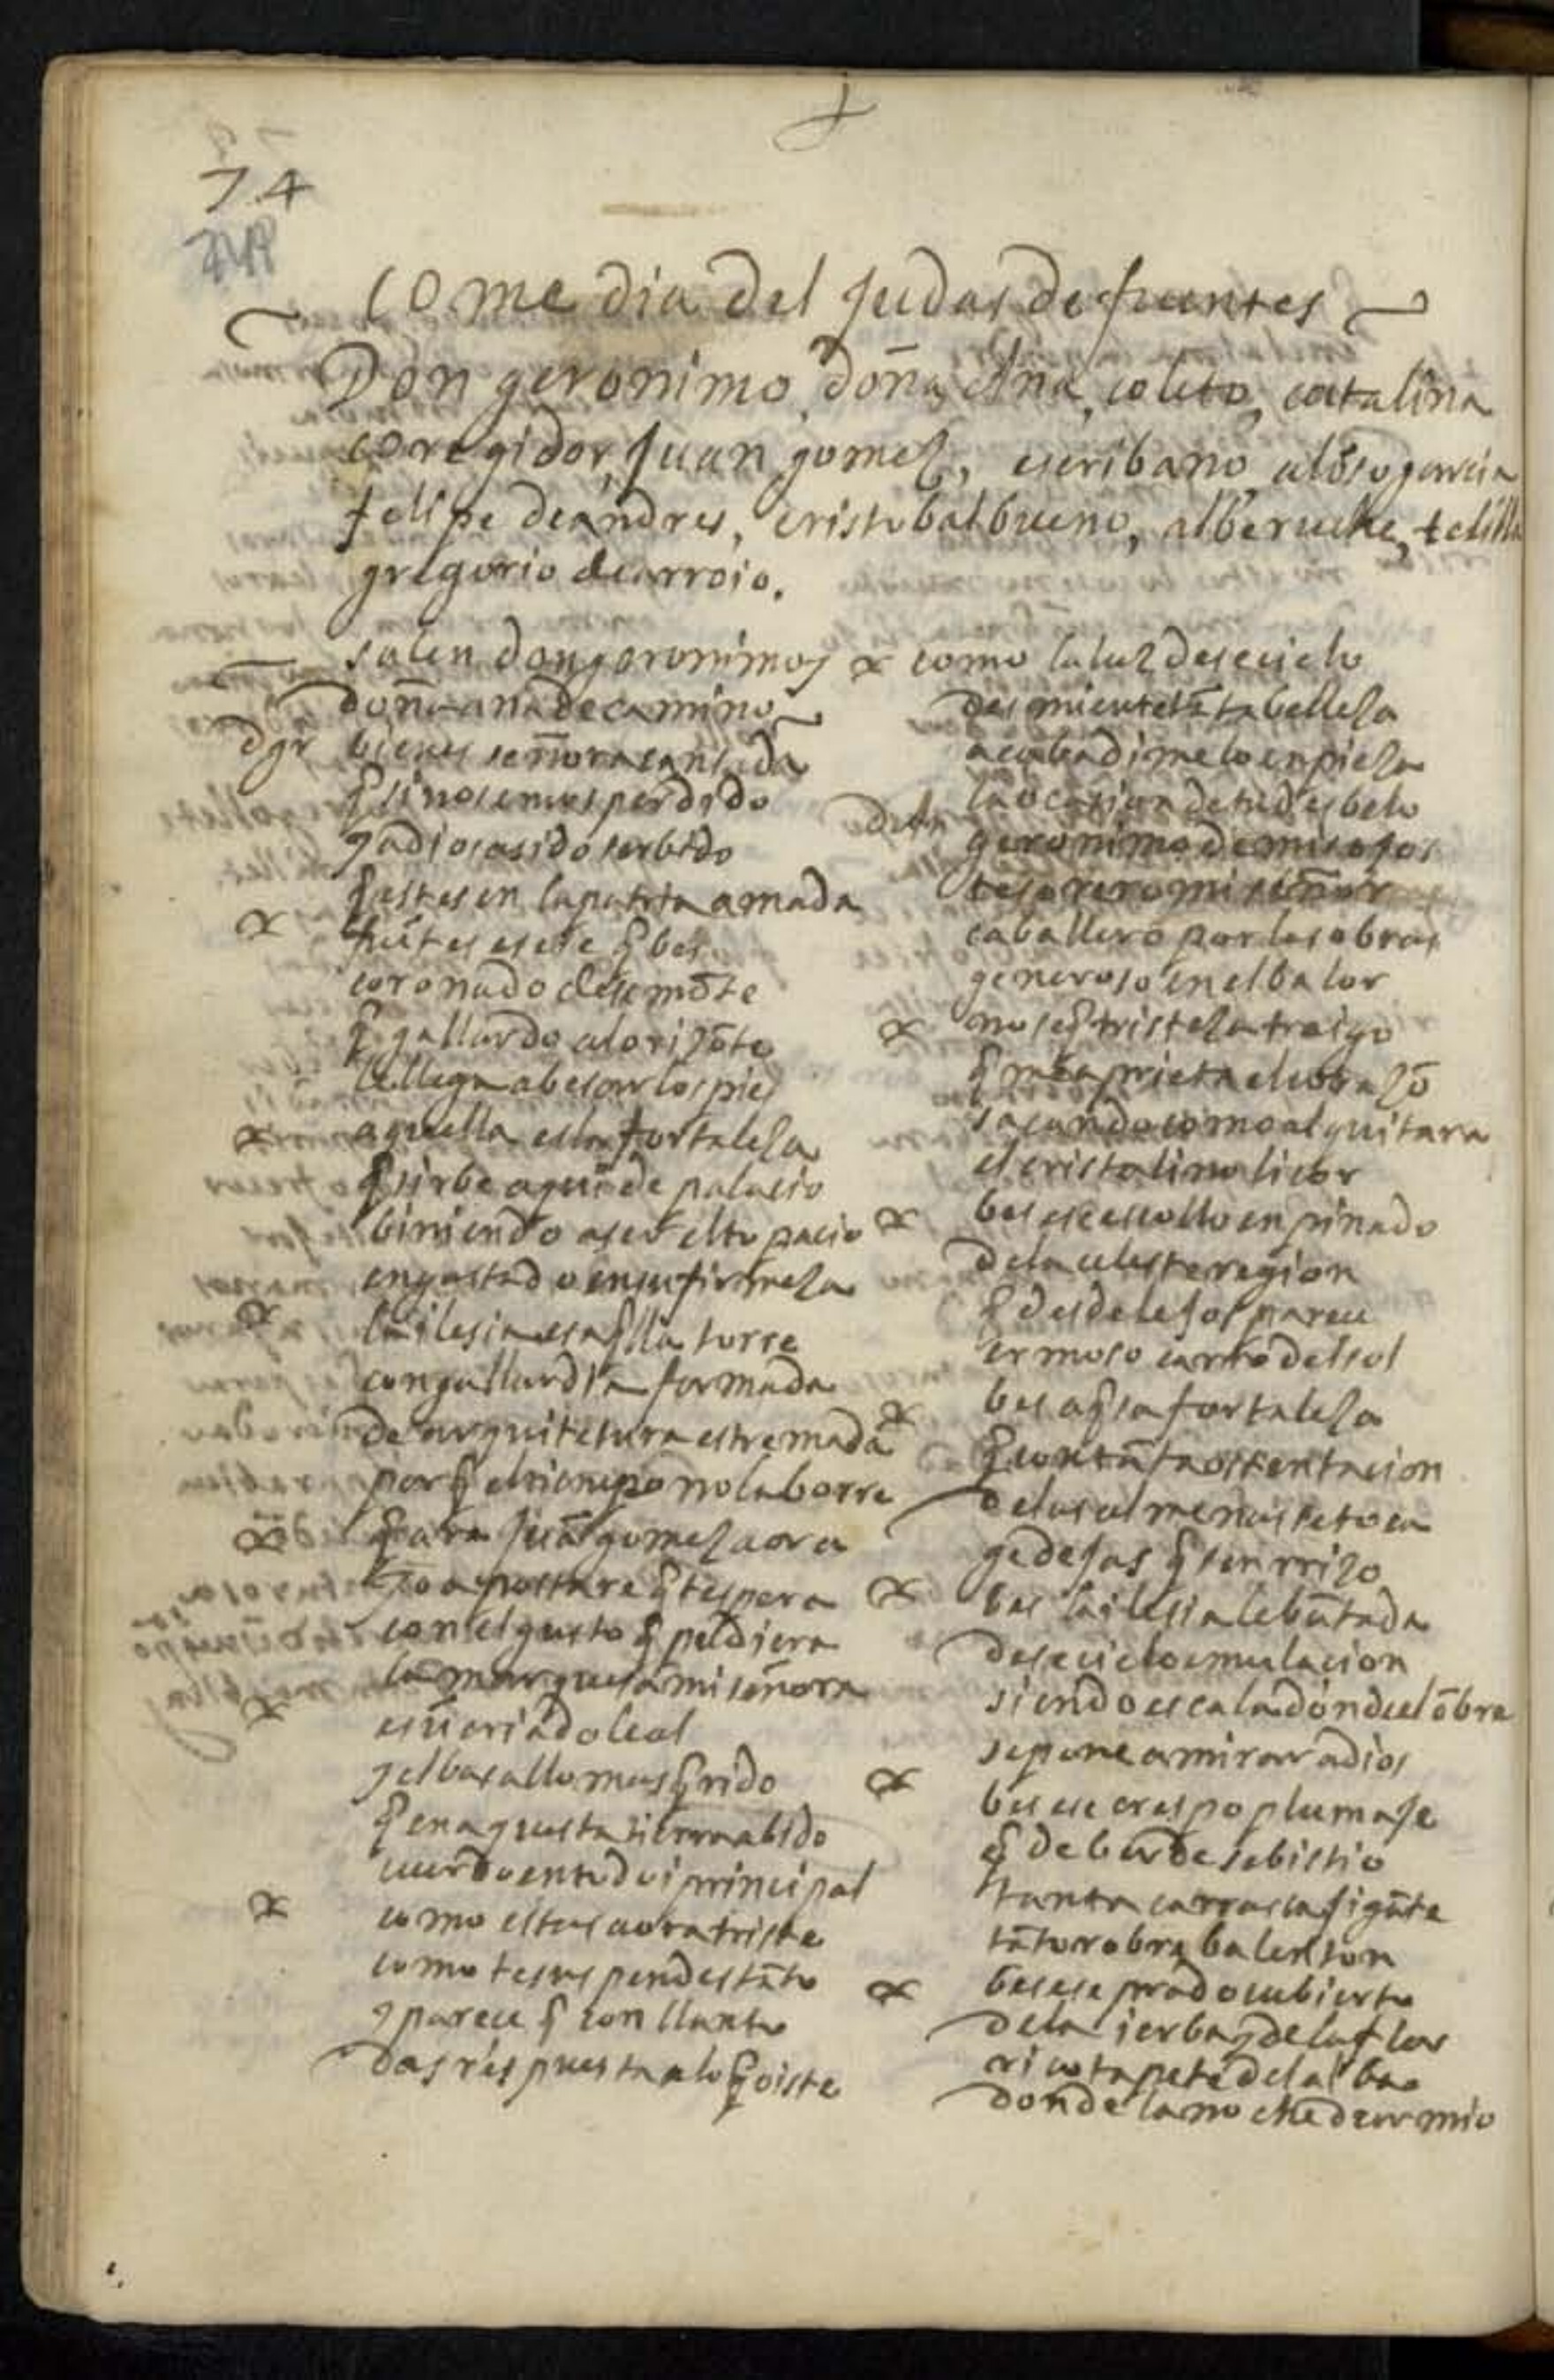 74
comedia del Judas de fuentes
Don geronimo, doña Ana, coleto, catalina
coregidor, Juan gomez, escribano, alōso garcia
felipe de andres, cristobal bueno, alberuche, telilla
gregorio de arroio.
salen don geronimo y
doña ana de camino
dgr bienes señora cansada
q̃ si nos emos perdido
y a dios a sido serbido
q̃ estes en la patria amada
fuētes es ese q̃ bes
coronado dese mōte
q̃ gallardo al orizōte
le llega a besar los pies
aquella es la fortaleza
q̃ sirbe aqui de palacio
biniendo a ser el topacio
engastado en su firmeza
la ilesia es aq̃lla torre
con gallardia formada
de arquitetura estremada
porq̃ el tienpo no la borre
q̃ ara juā gomez aora
yo apostare q̃ te spera
con el gusto q̃ pudiera
la marquesa mi señora
es ū criado leal
y el basallo mas q̃rido
q̃ en aquesta tierra abido
cuerdo en todo i principal
como estas aora triste
como te suspendes tāto
y parece q̃ con llanto
das respuesta a lo q̃ oiste
como la luz dese cielo
desmiente tāta belleza
acaba dimelo enpieza
la ocasion de tu desbelo
geronimo de mis ojos
tesorero mi señor
caballero por las obras
generoso en el balor
no se q̃ tristeza traigo
q̃ me aprieta el corazō
sacando como alquitara
el cristalino licor
bes ese escollo enpinado
de la celeste region
q̃ desde lejos parece
ermoso carro del sol
bes aq̃sa fortaleza
q̃ con tāta ostentacion
de las almenas se toca
gedejas q̃ se en rrizo
bes la ilesia lebātada
dese cielo emulacion
siendo escala donde el ōbre
se pone a mirar a dios
bes ese crespo plumaje
q̃ de berde se bistio
tanta carrasca jigāte
tāto robre balenton
bes ese prado cubierto
de la ierba y de la flor
rico tapete del alba
donde la noche durmio